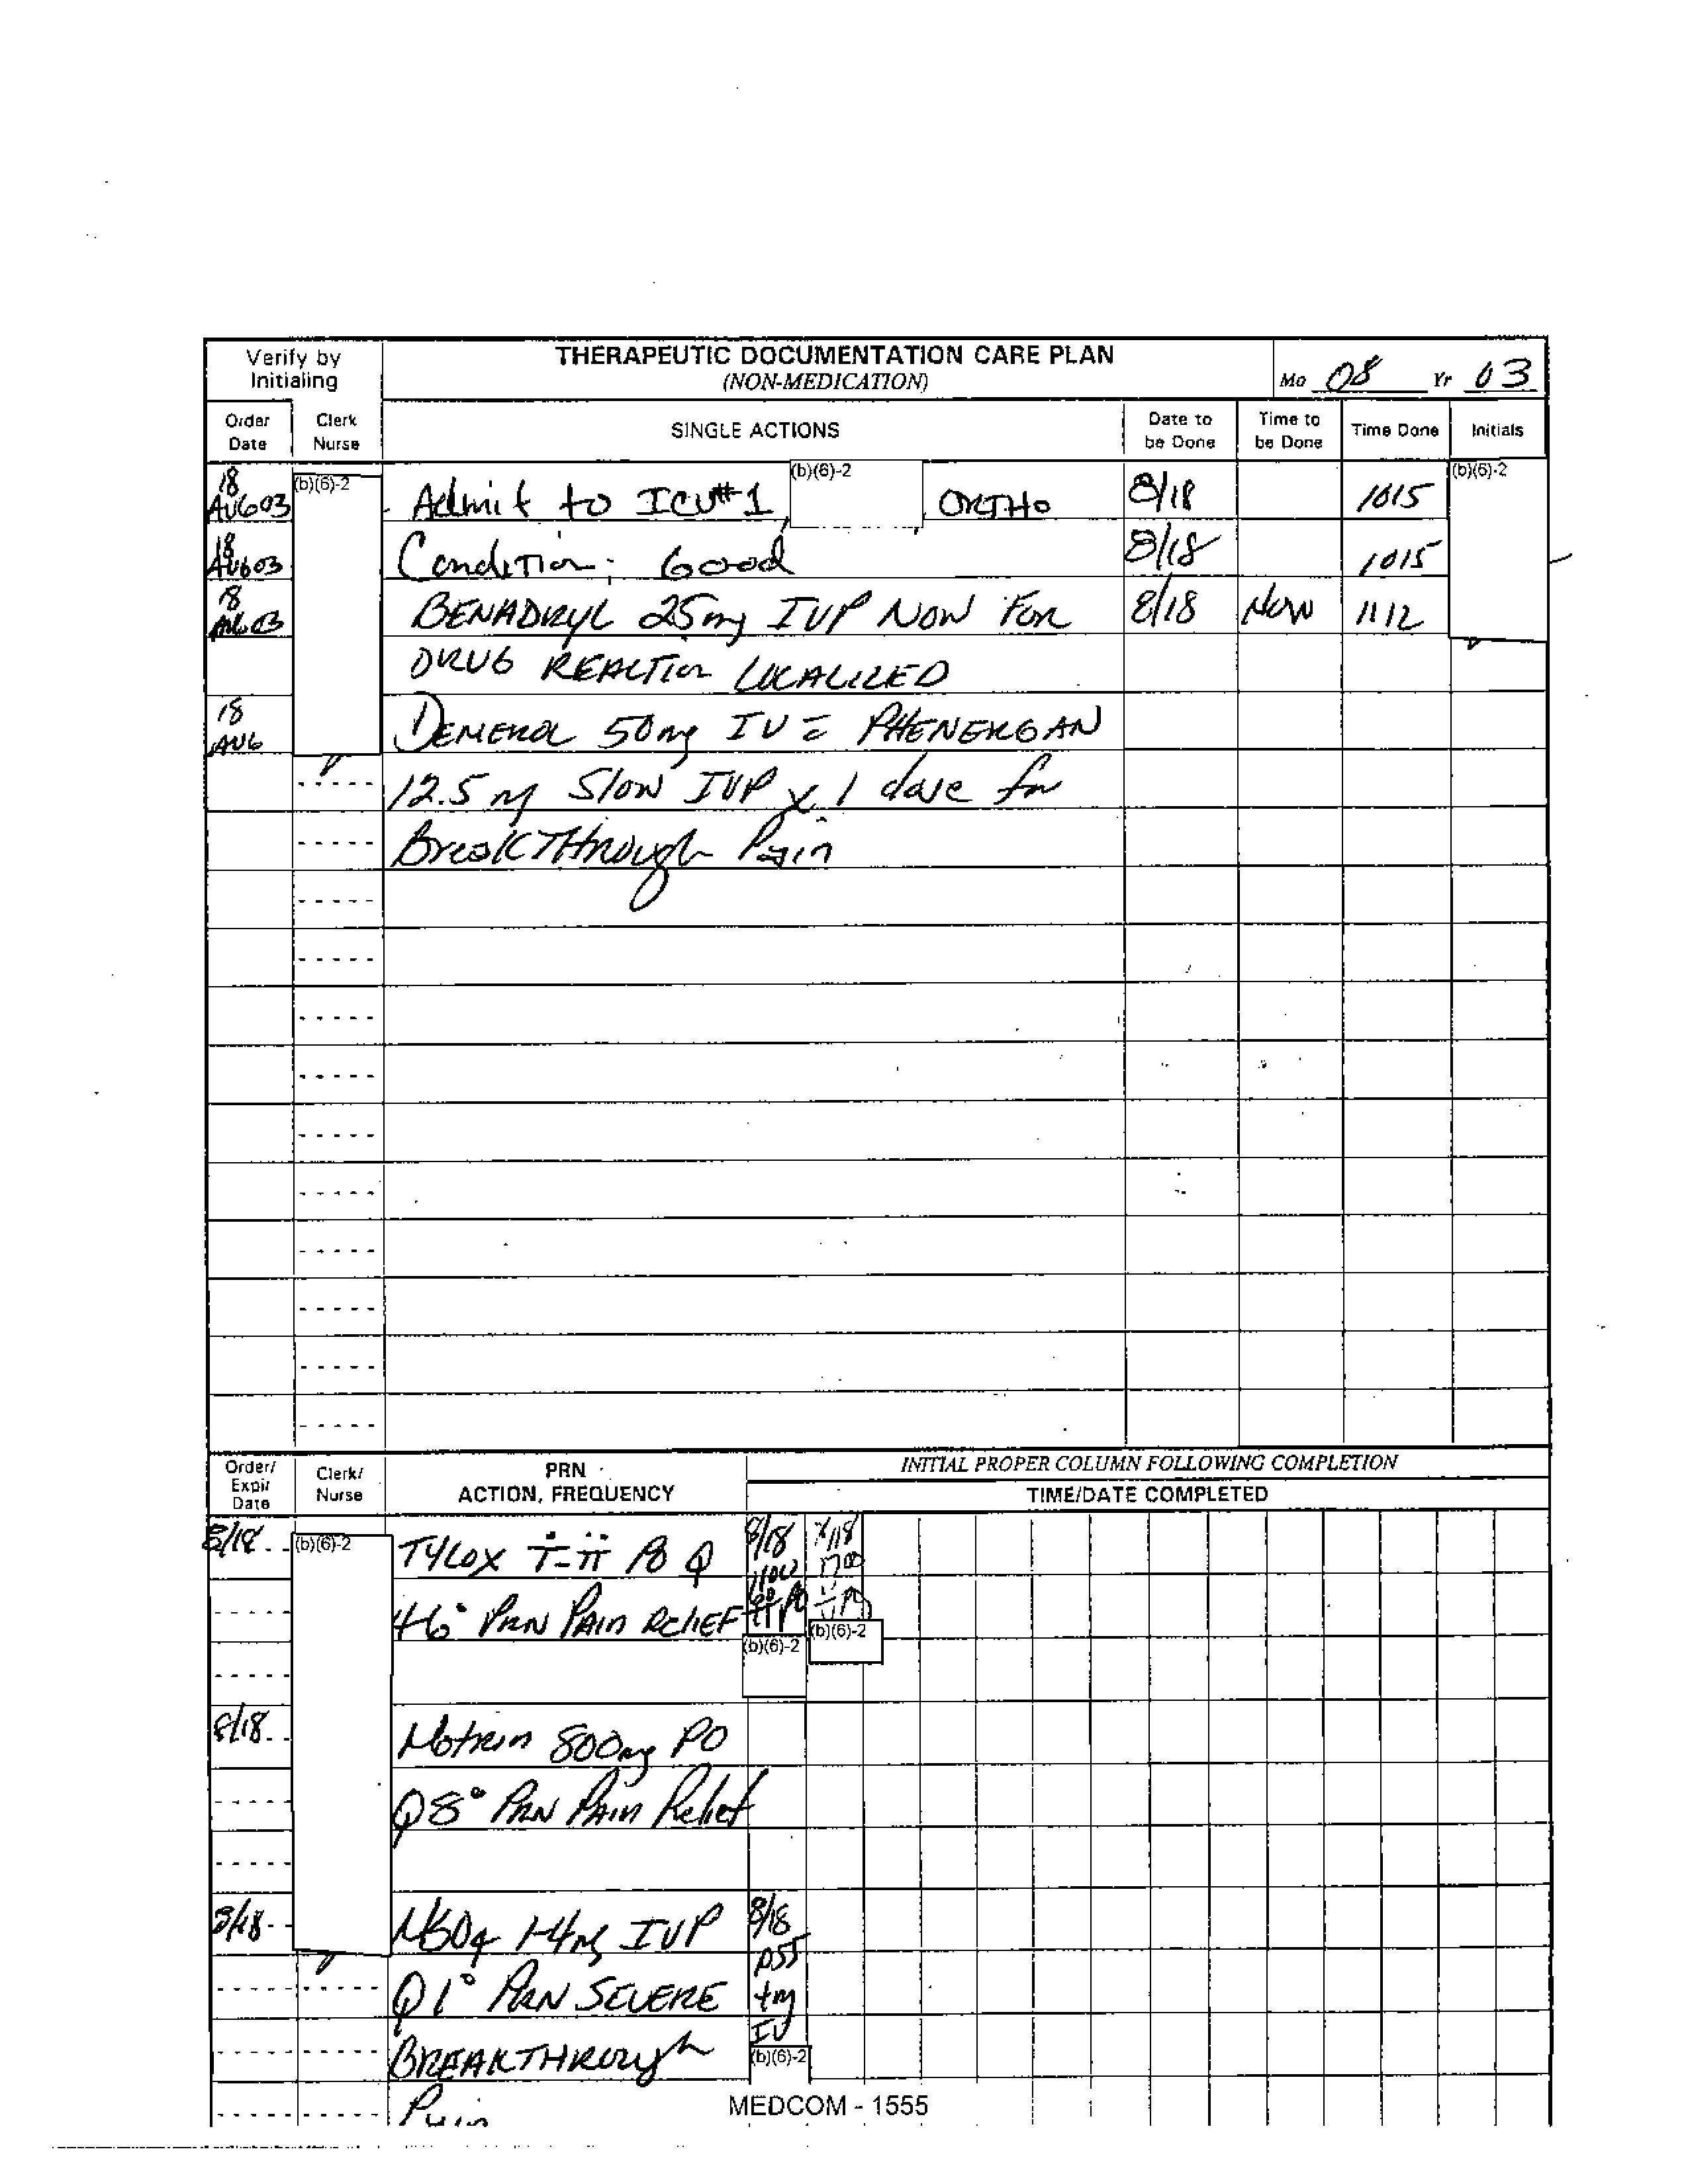 Verify by Initialing
THERAPEUTIC DOCUMENTATION CARE PLAN
(NON-MEDICATION)
Mo 08 Yr 03
Order Date
Clerk Nurse
SINGLE ACTIONS
Date to be Done
Time to be Done
Time Done
Initials
18 AUG03 (b)(6)-2 Admit to ICU#1, (b)(6)-2, ORTHO 8/18 1015 (b)(6)-2
18 AUG03 Condition: Good 8/18 1015
18 AUG03 BENADRYL 25mg IVP NOW FOR 8/18 NOW 1112
DRUG REACTION LOCALIZED
18 AUG DEMEROL 50mg IV c PHENERGAN
12.5 mg Slow IVP x 1 dose for
BreakTHrough Pain
Order/ Expir Date
Clerk/ Nurse
PRN ACTION, FREQUENCY
INITIAL PROPER COLUMN FOLLOWING COMPLETION
TIME/DATE COMPLETED
8/18 (b)(6)-2 TYLOX i-ii PO Q 8/18 8/18
1700
4-6° PRN PAIN RELIEF PO PO
(b)(6)-2 (b)(6)-2
8/18 Motrin 800mg PO
Q8° PRN PAIN Relief
8/18 MSO4 1-4mg IVP 8/18
Q1° PRN SEVERE mg
BREAKTHROUGH IV
(b)(6)-2
Pain
MEDCOM - 1555